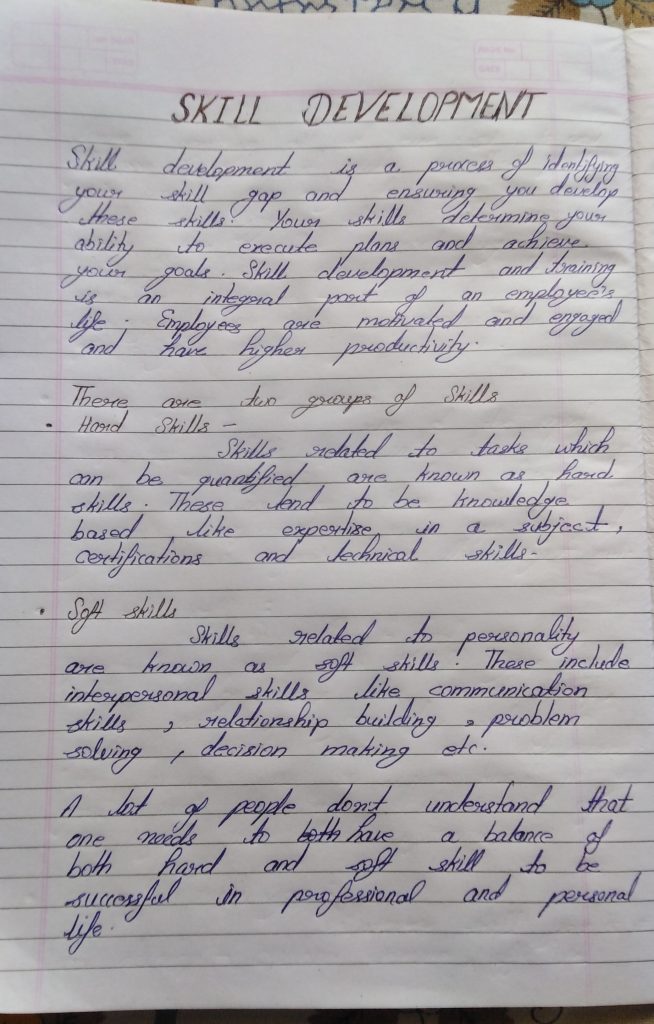 SKILL DEVELOPMENT
Skill development is a process of identifying
your skill gap and ensuring you develop
these skills. Your skills determine your
ability to execute plans and achieve
your goals. Skill development and training
is an integral part of an employee's
life. Employees are motivated and engaged
and have higher productivity.
There are two groups of Skills
• Hard Skills -
Skills related to tasks which
can be quantified are known as hard
skills. These tend to be knowledge
based like expertise in a subject,
certifications and technical skills-
• Soft skills
Skills related to personality
are known as soft skills. These include
interpersonal skills like communication
skills, relationship building, problem
solving, decision making etc.
A lot of people don't understand that
one needs to both have a balance of
both hard and soft skill to be
successful in professional and personal
life.